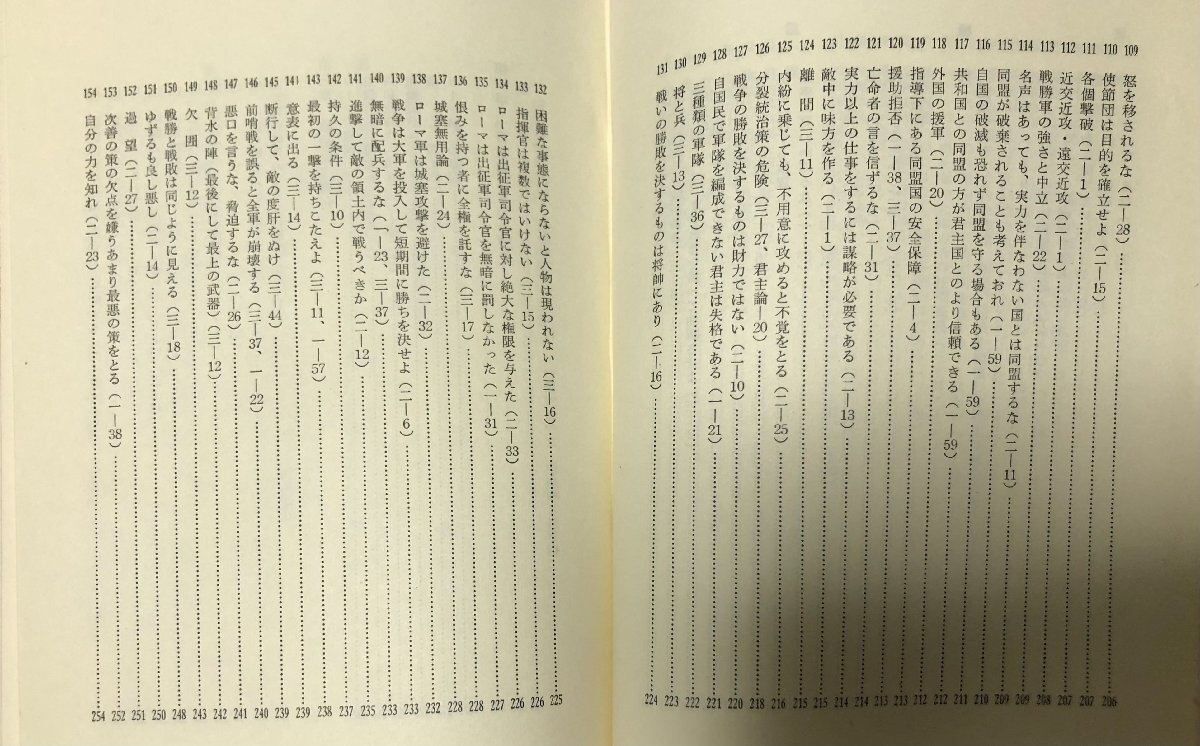 109 怒を移されるな（二―28）……206
110 使節団は目的を確立せよ（二―15）……207
111 各個撃破（二―1）……207
112 近交近攻・遠交近攻（二―1）……208
113 戦勝軍の強さと中立（二―22）……209
114 名声はあっても、実力を伴なわない国とは同盟するな（二―11）……209
115 同盟が破棄されることも考えておれ（一―59）……210
116 自国の破滅も恐れず同盟を守る場合もある（一―59）……210
117 共和国との同盟の方が君主国とのより信頼できる（一―59）……211
118 外国の援軍（二―20）……212
119 指導下にある同盟国の安全保障（二―4）……212
120 援助拒否（一―38、三―37）……213
121 亡命者の言を信ずるな（二―31）……214
122 実力以上の仕事をするには謀略が必要である（二―13）……214
123 敵中に味方を作る（二―1）……215
124 離間（三―11）……215
125 内紛に乗じても、不用意に攻めると不覚をとる（二―25）……216
126 分裂統治策の危険（三―27、君主論―20）……218
127 戦争の勝敗を決するものは財力ではない（二―10）……220
128 自国民で軍隊を編成できない君主は失格である（一―21）……221
129 三種類の軍隊（三―36）……222
130 将と兵（三―13）……223
131 戦いの勝敗を決するものは将帥にあり（二―16）……224
132 困難な事態にならないと人物は現われない（三―16）……225
133 指揮官は複数ではいけない（三―15）……226
134 ローマは出征軍司令官に対し絶大な権限を与えた（二―33）……226
135 ローマは出征軍司令官を無暗に罰しなかった（一―31）……227
136 恨みを持つ者に全権を託すな（三―17）……228
137 城塞無用論（二―24）……228
138 ローマ軍は城塞攻撃を避けた（二―32）……232
139 戦争は大軍を投入して短期間に勝ちを決せよ（二―6）……232
140 無暗に配兵するな（一―23、三―37）……233
141 進撃して敵の領土内で戦うべきか（二―12）……235
142 持久の条件（三―10）……237
143 最初の一撃を持ちこたえよ（三―11、一―57）……238
144 意表に出る（三―14）……239
145 断行して、敵の度肝をぬけ（三―44）……239
146 前哨戦を誤ると全軍が崩壊する（三―37、一―22）……240
147 悪口を言うな、脅迫するな（二―26）……241
148 背水の陣（最後にして最上の武器）（三―12）……242
149 欠囲（三―12）……243
150 戦勝と戦敗は同じように見える（三―18）……248
151 ゆずるも良し悪し（二―14）……250
152 過望（二―27）……251
153 次善の策の欠点を嫌うあまり最悪の策をとる（一―38）……252
154 自分の力を知れ（二―23）……254